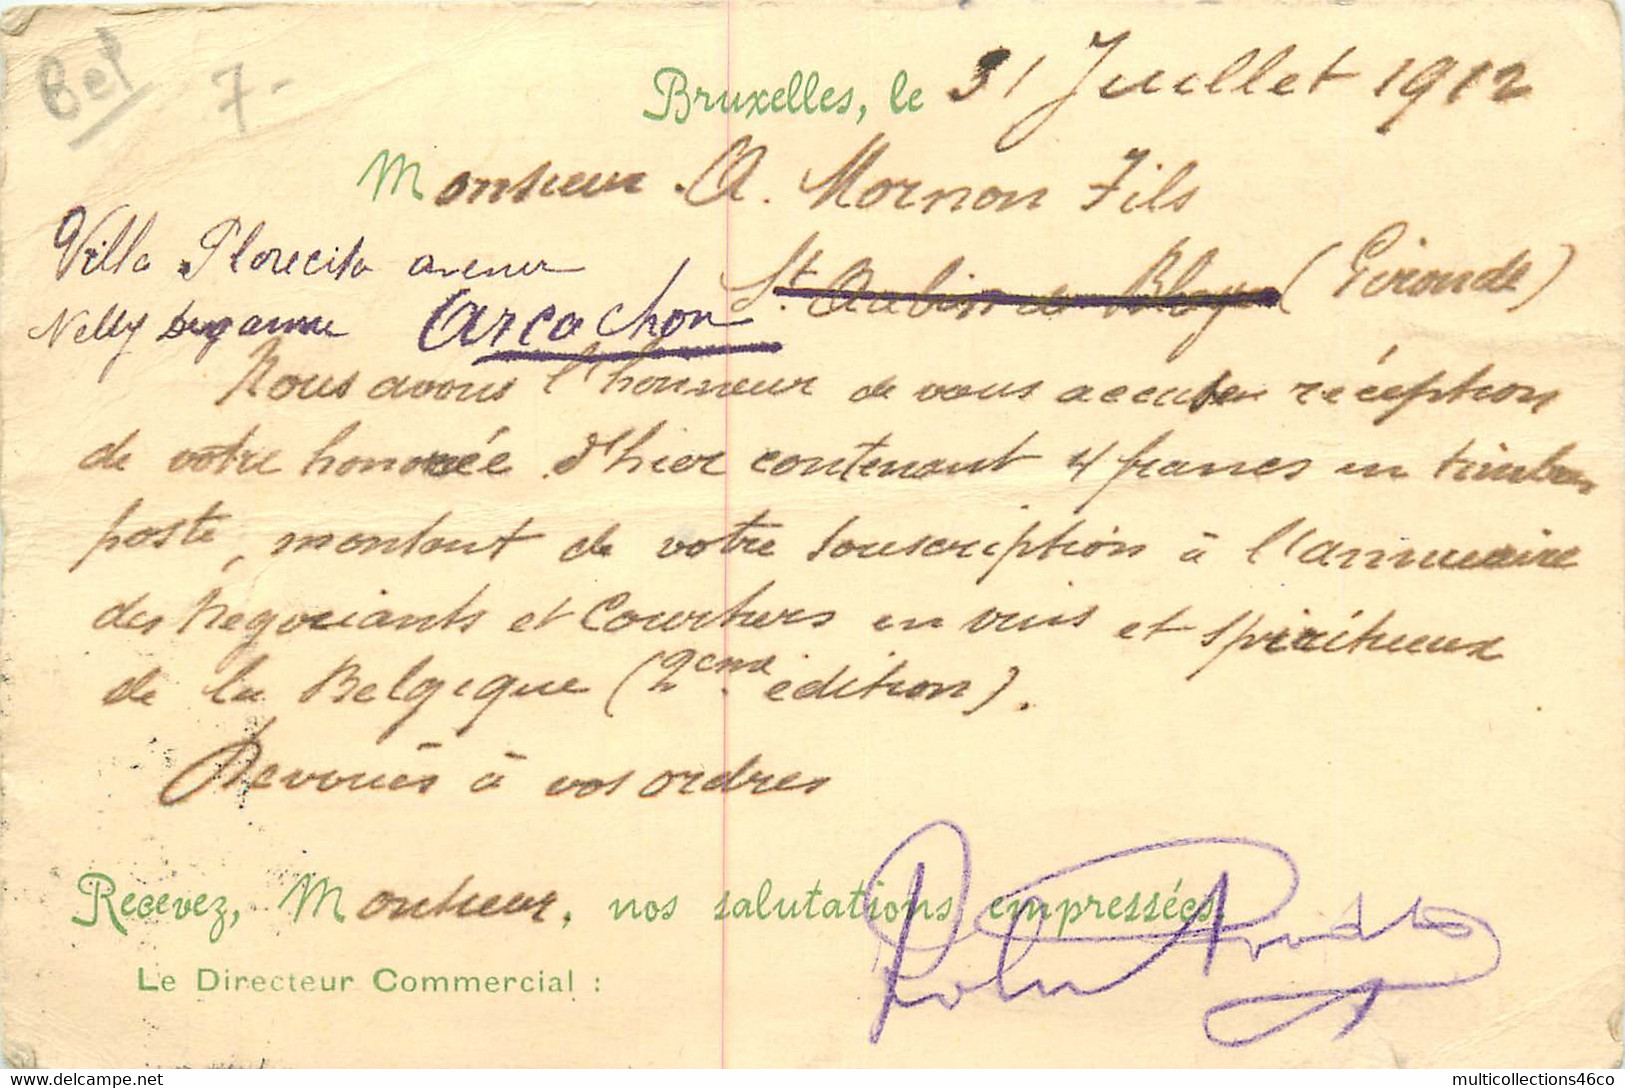 Bel 7-
Bruxelles, le 31 Juillet 1912
Monsieur A. Mornon Fils
Villa Florecita avenue
St Aubin de Blaye (Gironde)
Nelly Arcachon
Nous avons l'honneur de vous accuser réception
de votre honorée d'hier contenant 4 francs en timbres
poste, montant de votre souscription à l'annuaire
des Négociants et Courtiers en vins et spiritueux
de la Belgique (2eme édition).
Dévoués à vos ordres
Recevez, Monsieur, nos salutations empressées.
Le Directeur Commercial :
multicollections46co